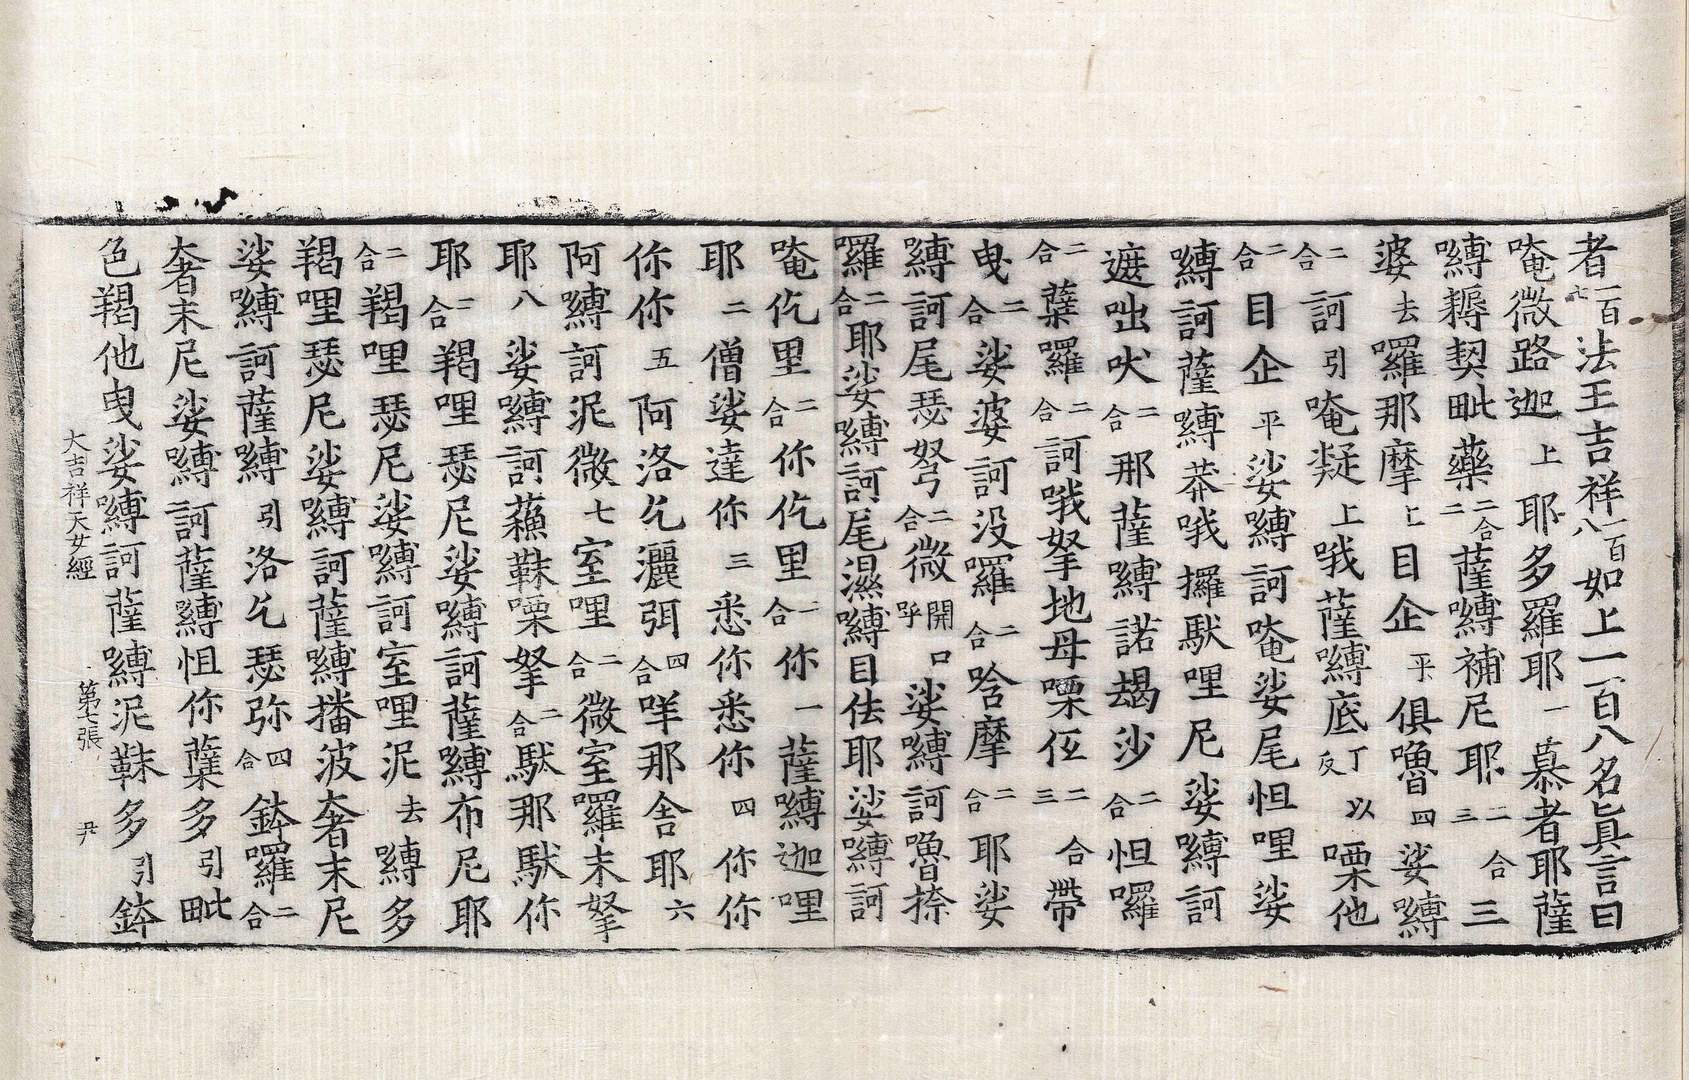 者一百七法王吉祥一百八如上一百八名眞言曰
唵微路迦上耶多羅耶一慕者耶薩
嚩耨契毗藥二合二薩嚩補尼耶二合三三
婆去囉那摩上目企平俱嚕四娑嚩
二合訶引唵凝上哦薩嚩底丁以反㗚他
二合目企平娑嚩訶唵娑尾怛哩娑
嚩訶薩嚩莽哦攞馱哩尼娑嚩訶
遮咄吠二合那薩嚩諾朅沙二合怛囉
二合蘖囉二合訶哦拏地母㗚二合三帶
曳二合娑婆訶没囉二合唅摩二合耶娑
嚩訶尾瑟弩二合微開口呼娑嚩訶嚕捺
囉二合耶娑嚩訶尾濕嚩目佉耶娑嚩訶
唵仡里二合你仡里二合你一薩嚩迦哩
耶二僧娑達你三悉你悉你四你你
你你五阿洛乞灑弭四合咩那舍耶六
阿嚩訶泥微七室哩二合微室羅末拏
耶八娑嚩訶蘓靺㗚拏二合馱那馱你
耶二合羯哩瑟尼娑嚩訶薩嚩布尼耶
二合羯哩瑟尼娑嚩訶室哩泥去嚩多
羯哩瑟尼娑嚩訶薩嚩播波奢末尼
娑嚩訶薩嚩引洛乞瑟弥四合鉢羅二合
奢末尼娑嚩訶薩嚩怛你蘖多引毗
色羯他曳娑嚩訶薩嚩泥靺多引鉢
大吉祥天女經　第七張　尹